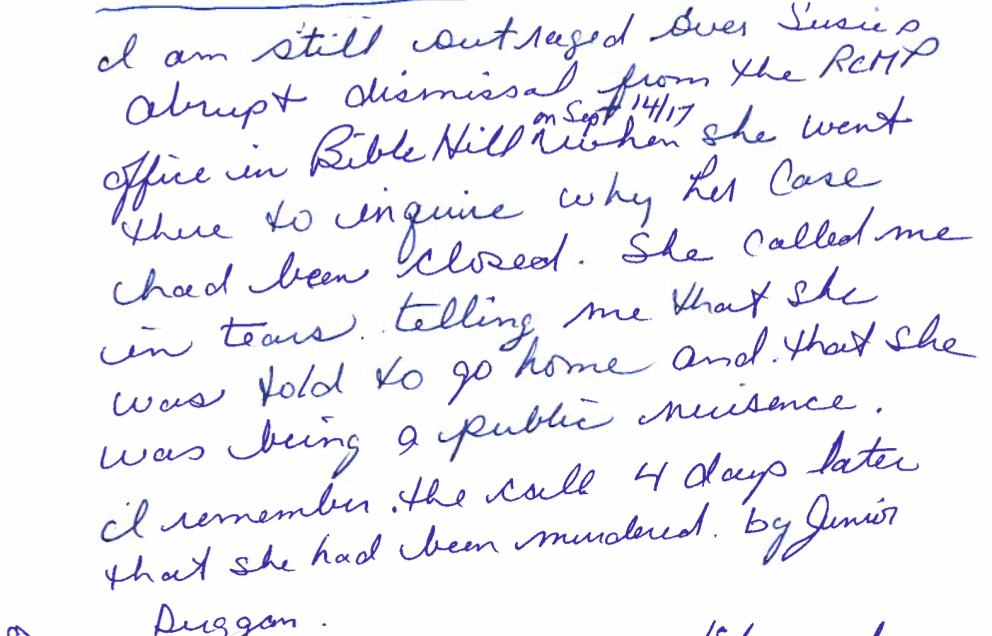 I am still outraged over Susie's
abrupt dismissal from the RCMP
on Sept 14/17
office in Bible Hill when she went
there to inquire why her case
had been closed. She called me
in tears. telling me that she
was told to go home and that she
was being a public nuisence.
I remember the call 4 days later
that she had been murdered. by Junior
Duggan.